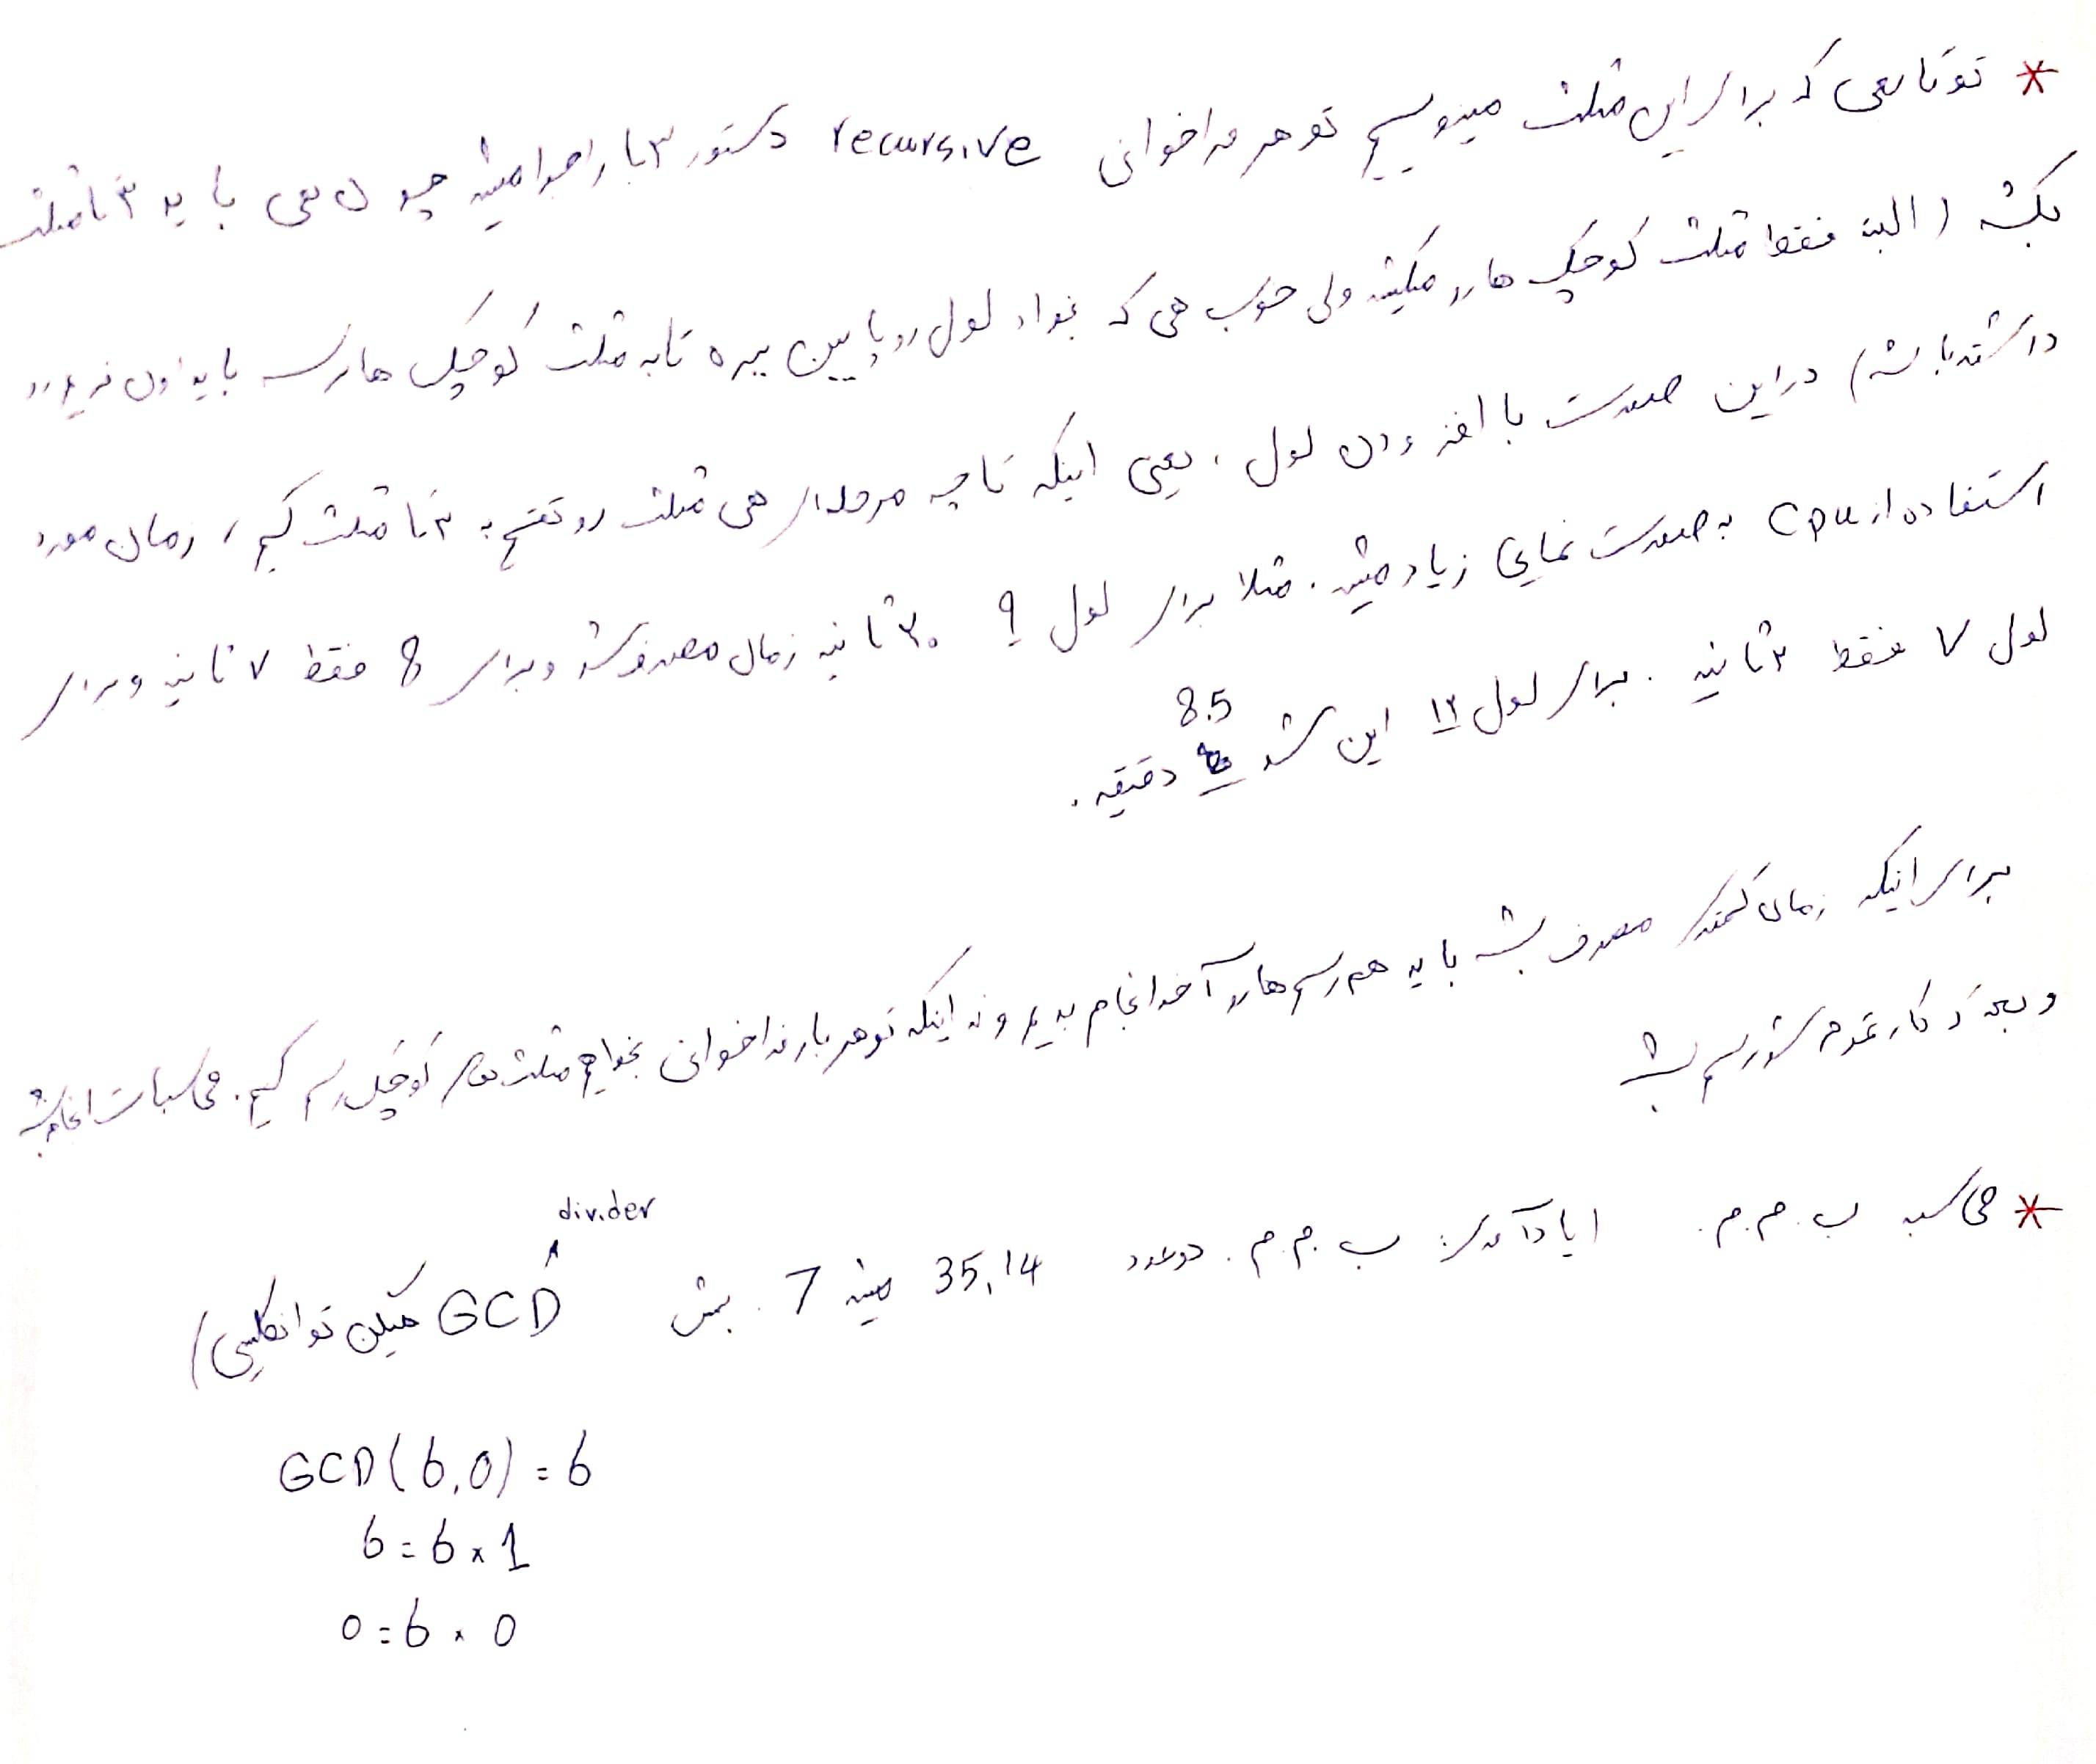 * تو تابعی که برای این مثلث مینویسیم تو هر فراخوانی recursive دستور ۳ بار اجرا میشه چون هی باید ۳ تا مثلث
بکشه (البته فقط مثلث کوچیک هارو میکشه ولی خوب هی که بخواد لول رو پایین ببره تا به مثلث کوچیک ها برسه باید اون رو
داشته باشه) در این صورت با افزودن لول، یعنی اینکه تا چه مرحله ای هی مثلث رو تقسیم به ۳ تا مثلث کنیم، زمان مورد
استفاده از CPU به صورت نمایی زیاد میشه. مثلا برای لول 9 ۲۰ ثانیه زمان مصرف شد و برای 8 فقط ۷ ثانیه و برای
لول ۷ فقط ۳ ثانیه. برای لول ۱۲ این شد 8.5 دقیقه.
برای اینکه زمان کمتری مصرف بشه باید همه رسم هارو آخر انجام بدیم و نه اینکه تو هر بار فراخوانی بخوایم مثلث های کوچیک رسم کنیم. محاسبات انجام بشه
و بعد که کار تموم شد رسم بشه
* محاسبه ب.م.م. (یادآوری: ب.م.م. دو عدد 35,14 میشه 7. بهش GCD میگن تو انگلیسی)
divider
GCD(6,0) = 6
6 = 6 × 1
0 = 6 × 0